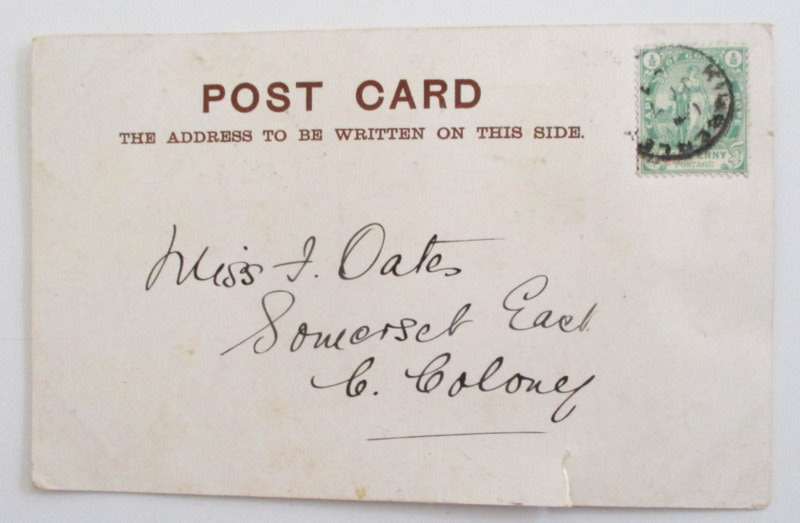 POST CARD
THE ADDRESS TO BE WRITTEN ON THIS SIDE.
KIMBERLEY
POSTAGE
Miss F. Oates
Somerset East
C. Colony